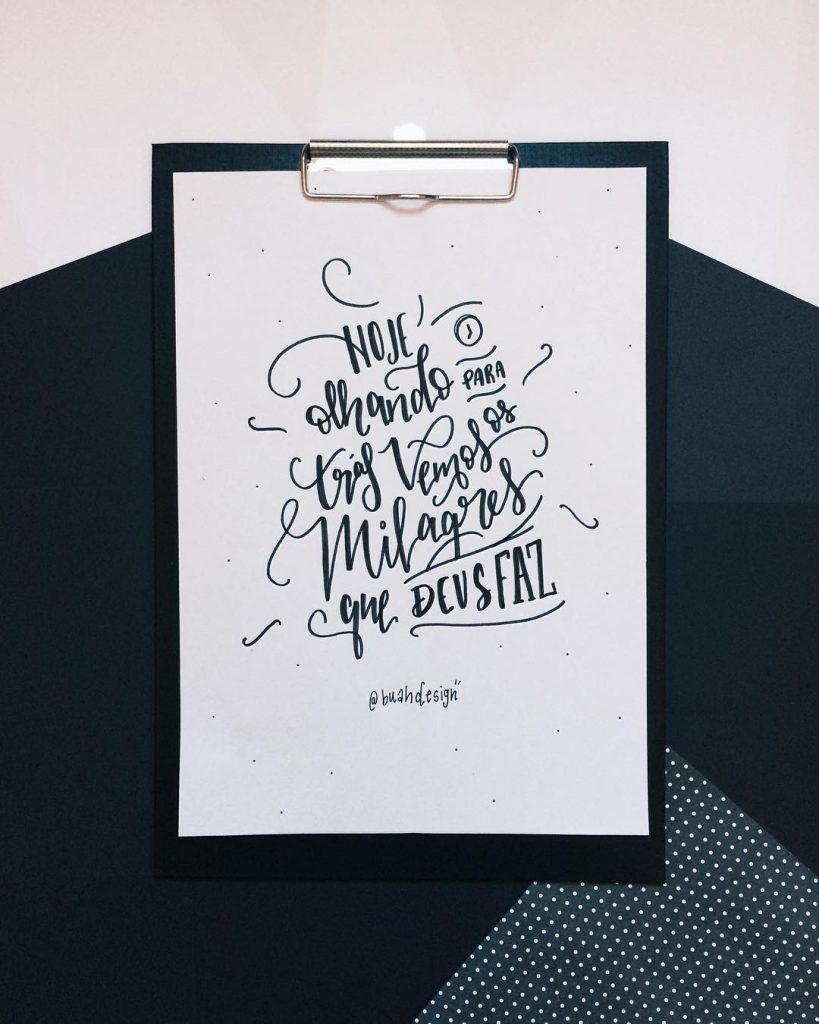 HOJE
olhando PARA
trás Vemos os
Milagres
que DEUS FAZ
@buahdesign"